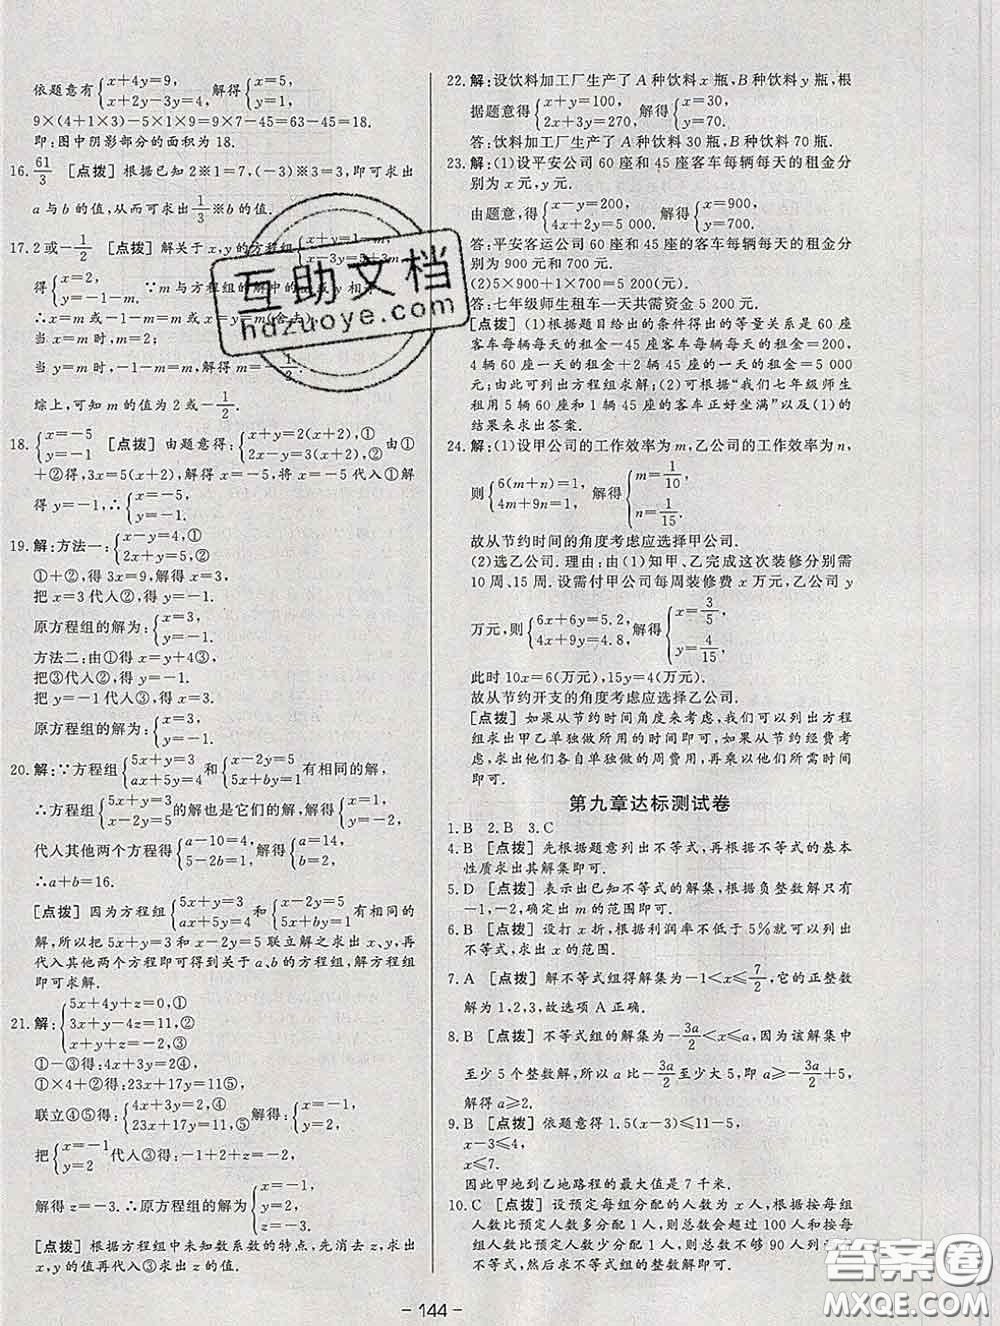 依题意有{x+4y=9, x+2y-3y=4, 解得{x=5, y=1,
9×(4+1×3)-5×1×9=9×7-45=63-45=18.
即:图中阴影部分的面积为18.
16. 61/3 [点拨]根据已知2※1=7,(-3)※3=3,即可求出
a与b的值,从而可求出1/3※b的值.
17. 2或-1/2 [点拨]解关于x,y的方程组{x+y=1-m, x-3y=5+3m
得{x=2, y=-1-m. ∵m与方程组的解中的x或y相
∴x=m或-1-m=m
当x=m时,m=2;
当y=m时,-1-m=m,解得m=-1/2.
综上,可知m的值为2或-1/2.
18. {x=-5 y=-1 [点拨]由题意得:{x+y=2(x+2),① 2x-y=3(x+2),② 由①
+②得,3x=5(x+2),解得x=-5,将x=-5代入①解
得y=-1,∴{x=-5, y=-1.
19. 解:方法一:{x-y=4,① 2x+y=5,②
①+②,得3x=9,解得x=3.
把x=3代人②,得y=-1.
原方程组的解为:{x=3, y=-1.
方法二:由①得x=4+y③,
把③代人②,得y=-1.
把y=-1代人③,得x=3.
原方程组的解为:{x=3, y=-1.
20. 解:∵方程组{5x+y=3 ax+5y=4和{x-2y=5 5x+by=1有相同的解,
∴方程组{5x+y=3 x-2y=5的解也是它们的解,解得:{x=1, y=-2,
代人其他两个方程得{a-10=4, 5-2b=1,解得:{a=14, b=2,
∴a+b=16.
[点拨]因为方程组{5x+y=3 ax+5y=4和{x-2y=5 5x+by=1有相同的
解,所以把5x+y=3和x-2y=5联立解之求出x、y,再
代入其他两个方程即可得到关于a、b的方程组,解方程组
即可求解.
21. 解:{5x+4y+z=0,① 3x+y-4z=11,② x+y+z=-2,③
①-③得:4x+3y=2④,
①×4+②得:23x+17y=11⑤,
联立④⑤得:{4x+3y=2,④ 23x+17y=11,⑤解得:{x=-1, y=2,
把{x=-1 y=2代人③得:-1+2+z=-2,
解得z=-3.∴原方程组的解为{x=-1, y=2, z=-3.
[点拨]根据方程组中未知数系数的特点,先消去z,求出
x,y的值再代入③求出z的值.
22. 解:设饮料加工厂生产了A种饮料x瓶,B种饮料y瓶,根
据题意得{x+y=100, 2x+3y=270,解得{x=30, y=70.
答:饮料加工厂生产了A种饮料30瓶,B种饮料70瓶.
23. 解:(1)设平安公司60座和45座客车每辆每天的租金分
别为x元,y元.
由题意,得{x-y=200, 4x+2y=5 000.解得{x=900, y=700.
答:平安客运公司60座和45座的客车每辆每天的租金分
别为900元和700元.
(2)5×900+1×700=5 200(元)
答:七年级师生租车一天共需资金5 200元.
[点拨](1)根据题目给出的条件得出的等量关系是60座
客车每辆每天的租金-45座客车每辆每天的租金=200,
4辆60座一天的租金+2辆45座的一天的租金=5 000
元;由此可列出方程组求解;(2)可根据“我们七年级师生
租用5辆60座和1辆45座的客车正好坐满”以及(1)的
结果来求出答案.
24. 解:(1)设甲公司的工作效率为m,乙公司的工作效率为n,
则{6(m+n)=1, 4m+9n=1,解得{m=1/10, n=1/15.
故从节约时间的角度考虑应选择甲公司.
(2)选乙公司.理由:由(1)知甲、乙完成这次装修分别需
10周、15周.设需付甲公司每周装修费x万元,乙公司y
万元,则{6x+6y=5.2, 4x+9y=4.8,解得{x=3/5, y=4/15,
此时10x=6(万元),15y=4(万元).
故从节约开支的角度考虑应选择乙公司.
[点拨]如果从节约时间角度来考虑,我们可以列出方程
组求出甲乙单独做所用的时间即可,如果从节约经费考
虑,求出他们各自单独做的周费用,再根据他们所做时间
即可.
第九章达标测试卷
1. B 2. B 3. C
4. B [点拨]先根据题意列出不等式,再根据不等式的基本
性质求出其解集即可.
5. D [点拨]表示出已知不等式的解集,根据负整数解只有
-1,-2,确定出m的范围即可.
6. B [点拨]设打x折,根据利润率不低于5%就可以列出
不等式,求出x的范围.
7. A [点拨]解不等式组得解集为-1<x≤7/2,它的正整数
解为1,2,3,故选项A正确.
8. B [点拨]不等式组的解集为-3a/2<x≤a,因为该解集中
至少5个整数解,所以a比-3a/2至少大5,即a≥-3a/2+5,
解得a≥2.
9. B [点拨]依题意得1.5(x-3)≤11-5,
x-3≤4,
x≤7.
因此甲地到乙地路程的最大值是7千米.
10. C [点拨]设预定每组分配的人数为x人,根据按每组
人数比预定人数多分配1人,则总数会超过100人和按每
组人数比预定人数少分配1人,则总数不够90人列
不等式,然后求不等式组的整数解即可.
- 144 -
互助文档
hdzuoye.com
答案卷
MXQE.COM